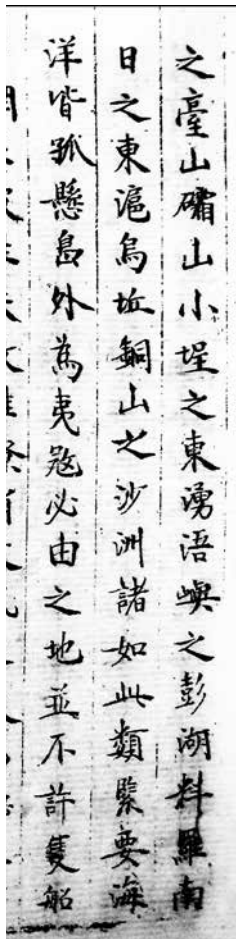 之臺山礵山小埕之東湧浯嶼之彭湖料羅南
日之東滬烏坵銅山之沙洲諸如此類緊要海
洋皆孤懸島外為夷寇必由之地並不許隻船